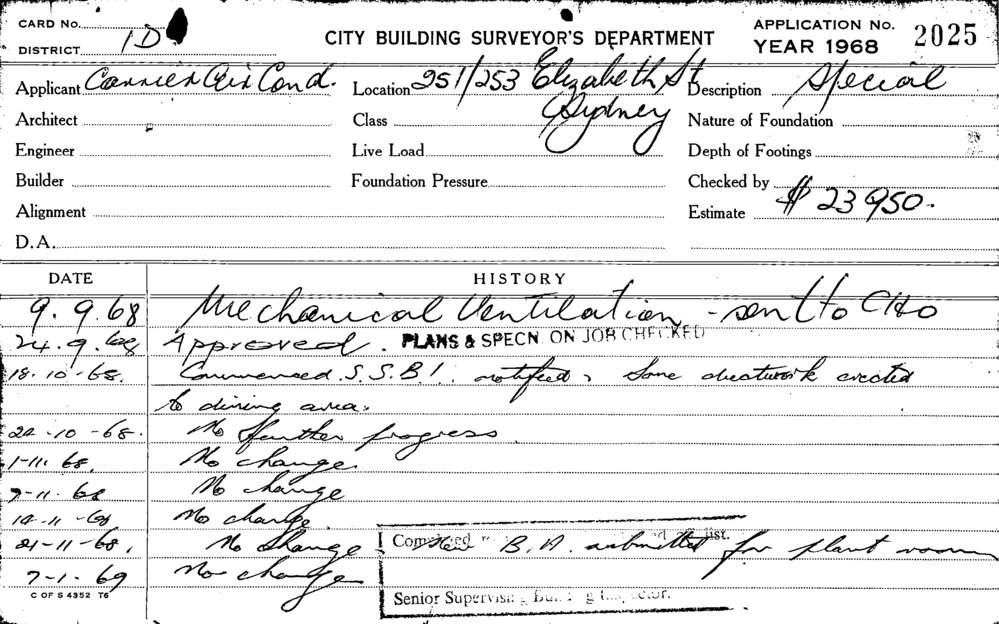 CARD No.
DISTRICT 1D
CITY BUILDING SURVEYOR'S DEPARTMENT
APPLICATION No. 2025
YEAR 1968
Applicant Carrier Air Cond.
Location 251/253 Elizabeth St
Sydney
Description Special
Architect
Class
Nature of Foundation
Engineer
Live Load
Depth of Footings
Builder
Foundation Pressure
Checked by
Alignment
Estimate $ 23950.
D.A.
DATE HISTORY
9.9.68 Mechanical Ventilation - sent to CHO
24.9.68 Approved. PLANS & SPECN ON JOB CHECKED
18.10.68. Commenced. S.S.B.I. notified, Some ductwork erected
to dining area.
22-10-68. No further progress.
1-11.68. No change.
7-11.68 No change
14-11-68 No change.
21-11-68, No change. New B.A. submitted for plant room
7-1.69 No change
Senior Supervising Building Inspector.
C OF S 4352 T6